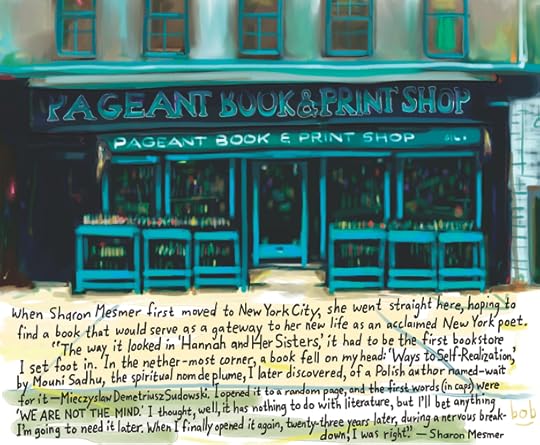 PAGEANT BOOK & PRINT SHOP
PAGEANT BOOK & PRINT SHOP
When Sharon Mesmer first moved to New York City, she went straight here, hoping to
find a book that would serve as a gateway to her new life as an acclaimed New York poet.
"The way it looked in 'Hannah and Her Sisters,' it had to be the first bookstore
I set foot in. In the nether-most corner, a book fell on my head: 'Ways to Self-Realization,'
by Mouni Sadhu, the spiritual nom de plume, I later discovered, of a Polish author named—wait
for it—Mieczyslaw Demetriusz Sudowski. I opened it to a random page, and the first words (in caps) were
'WE ARE NOT THE MIND.' I thought, well, it has nothing to do with literature, but I'll bet anything
I'm going to need it later. When I finally opened it again, twenty-three years later, during a nervous break-
down, I was right." — Sharon Mesmer
bob